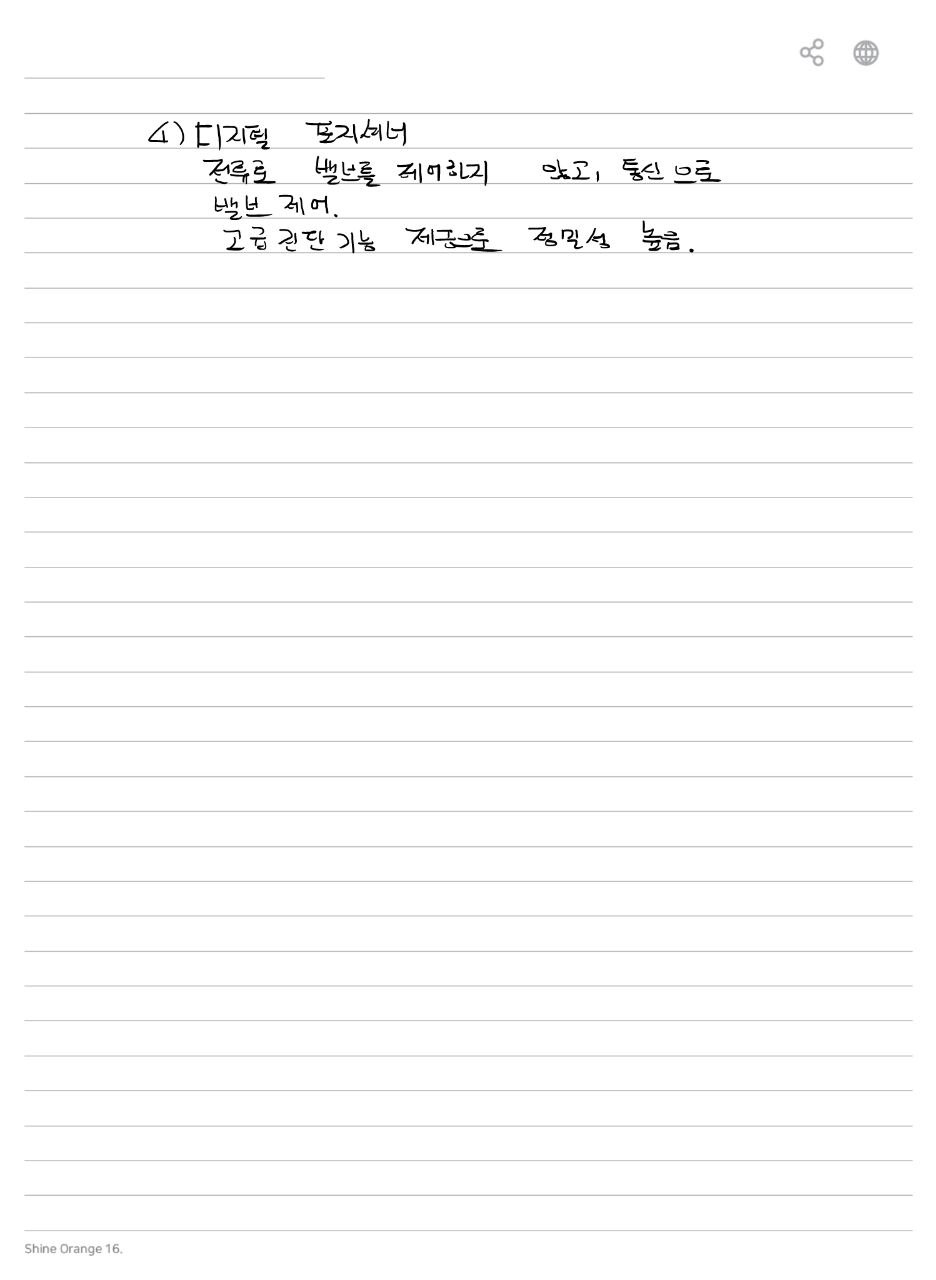 4) 디지털 포지셔너
전류로 밸브를 제어하지 않고, 통신으로
밸브 제어.
고급 진단 기능 제공으로 정밀성 높음.
Shine Orange 16.